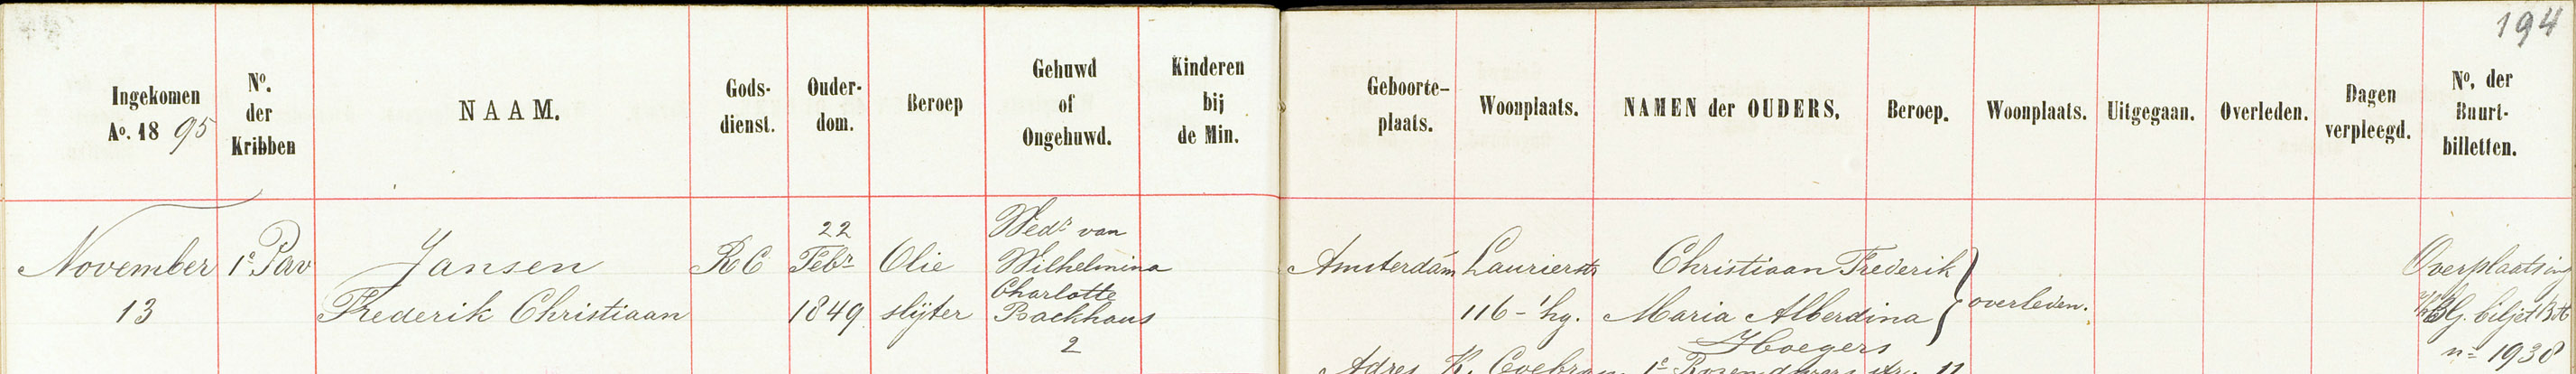 194
Ingekomen
Aº. 18 95
Nº.
der
Kribben
NAAM.
Gods-
dienst.
Ouder-
dom.
Beroep
Gehuwd
of
Ongehuwd.
Kinderen
bij
de Min.
Geboorte-
plaats.
Woonplaats.
NAMEN der OUDERS.
Beroep.
Woonplaats.
Uitgegaan.
Overleden.
Dagen
verpleegd.
Nº. der
Buurt-
billetten.
November
13
1e Pav
Jansen
Frederik Christiaan
RC
22
Febr
1849
Olie
slyter
Wedr van
Wilhelmina
Charlotte
Backhaus
2
Amsterdam
Laurierstr
116 - 1 hg.
Christiaan Frederik
Maria Alberdina
Hoegers
overleden.
Overplaatsing
biljet
nº 1938
Adres K. 1e 11